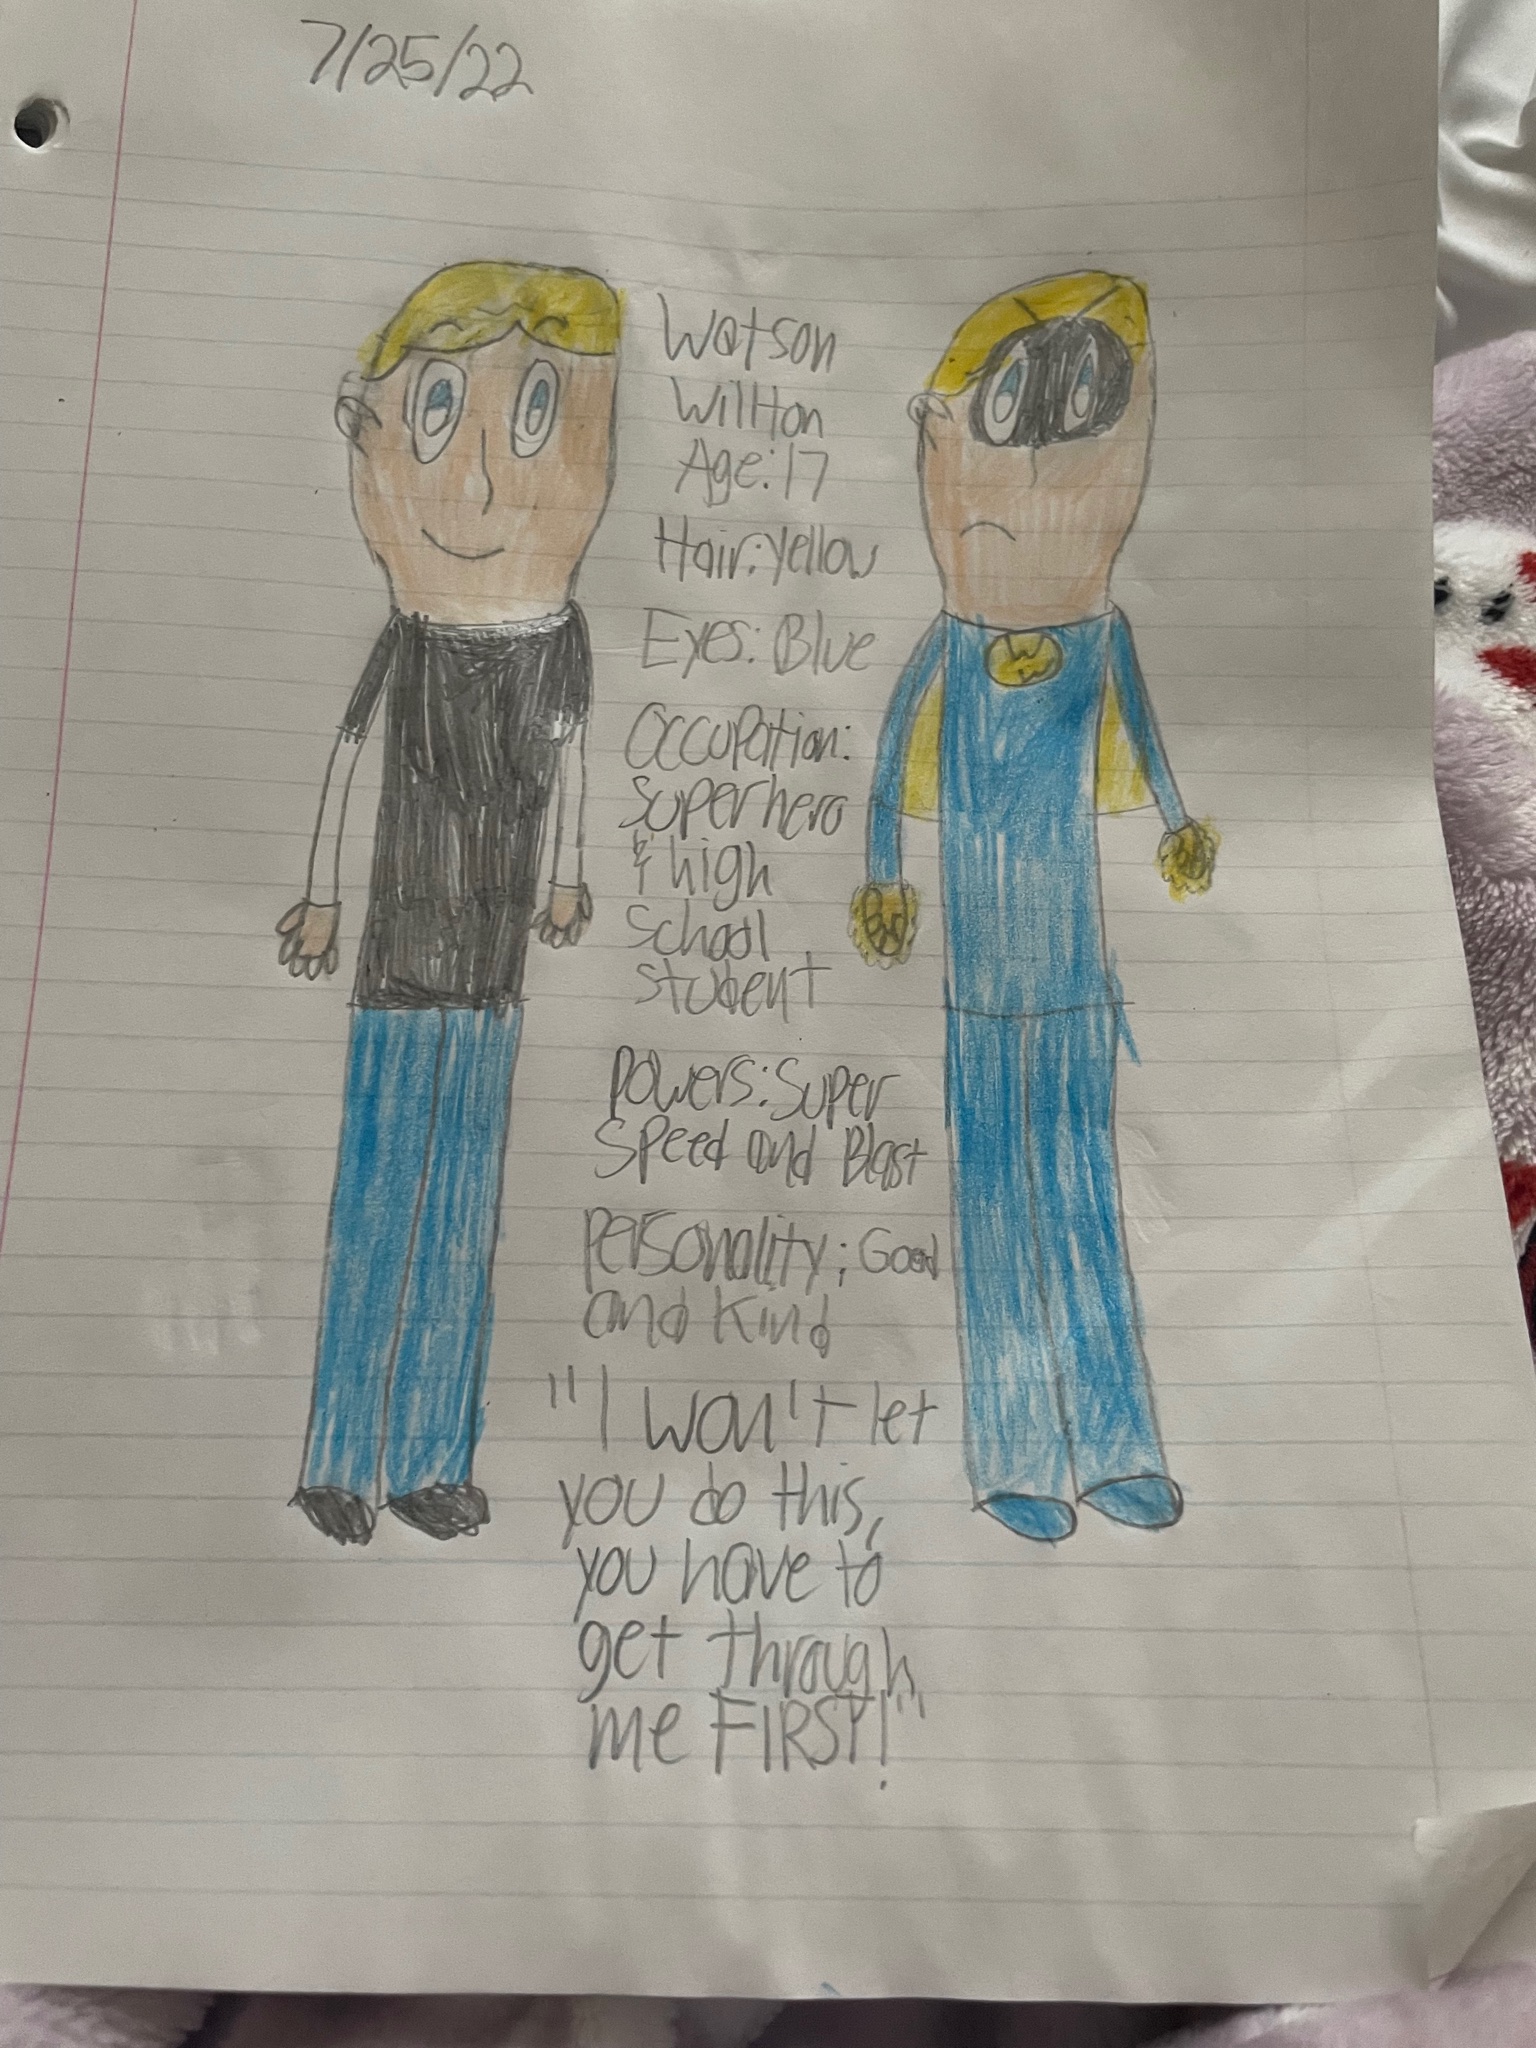 7/25/22
Watson
Willton
Age: 17
Hair: Yellow
Eyes: Blue
Occupation:
Superhero
& high
School
student
Powers: Super
Speed and Blast
Personality: Good
and Kind
"I won't let
you do this,
you have to
get through
me FIRST!"
W